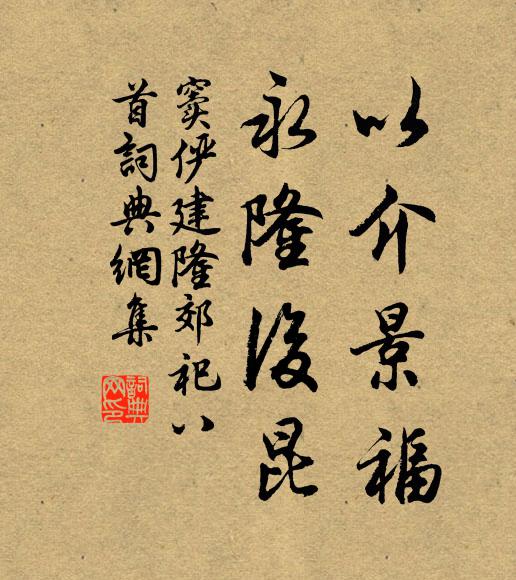 以介景福
永隆後昆
竇儼建隆郊祀八
首詞典網集
詞典網印